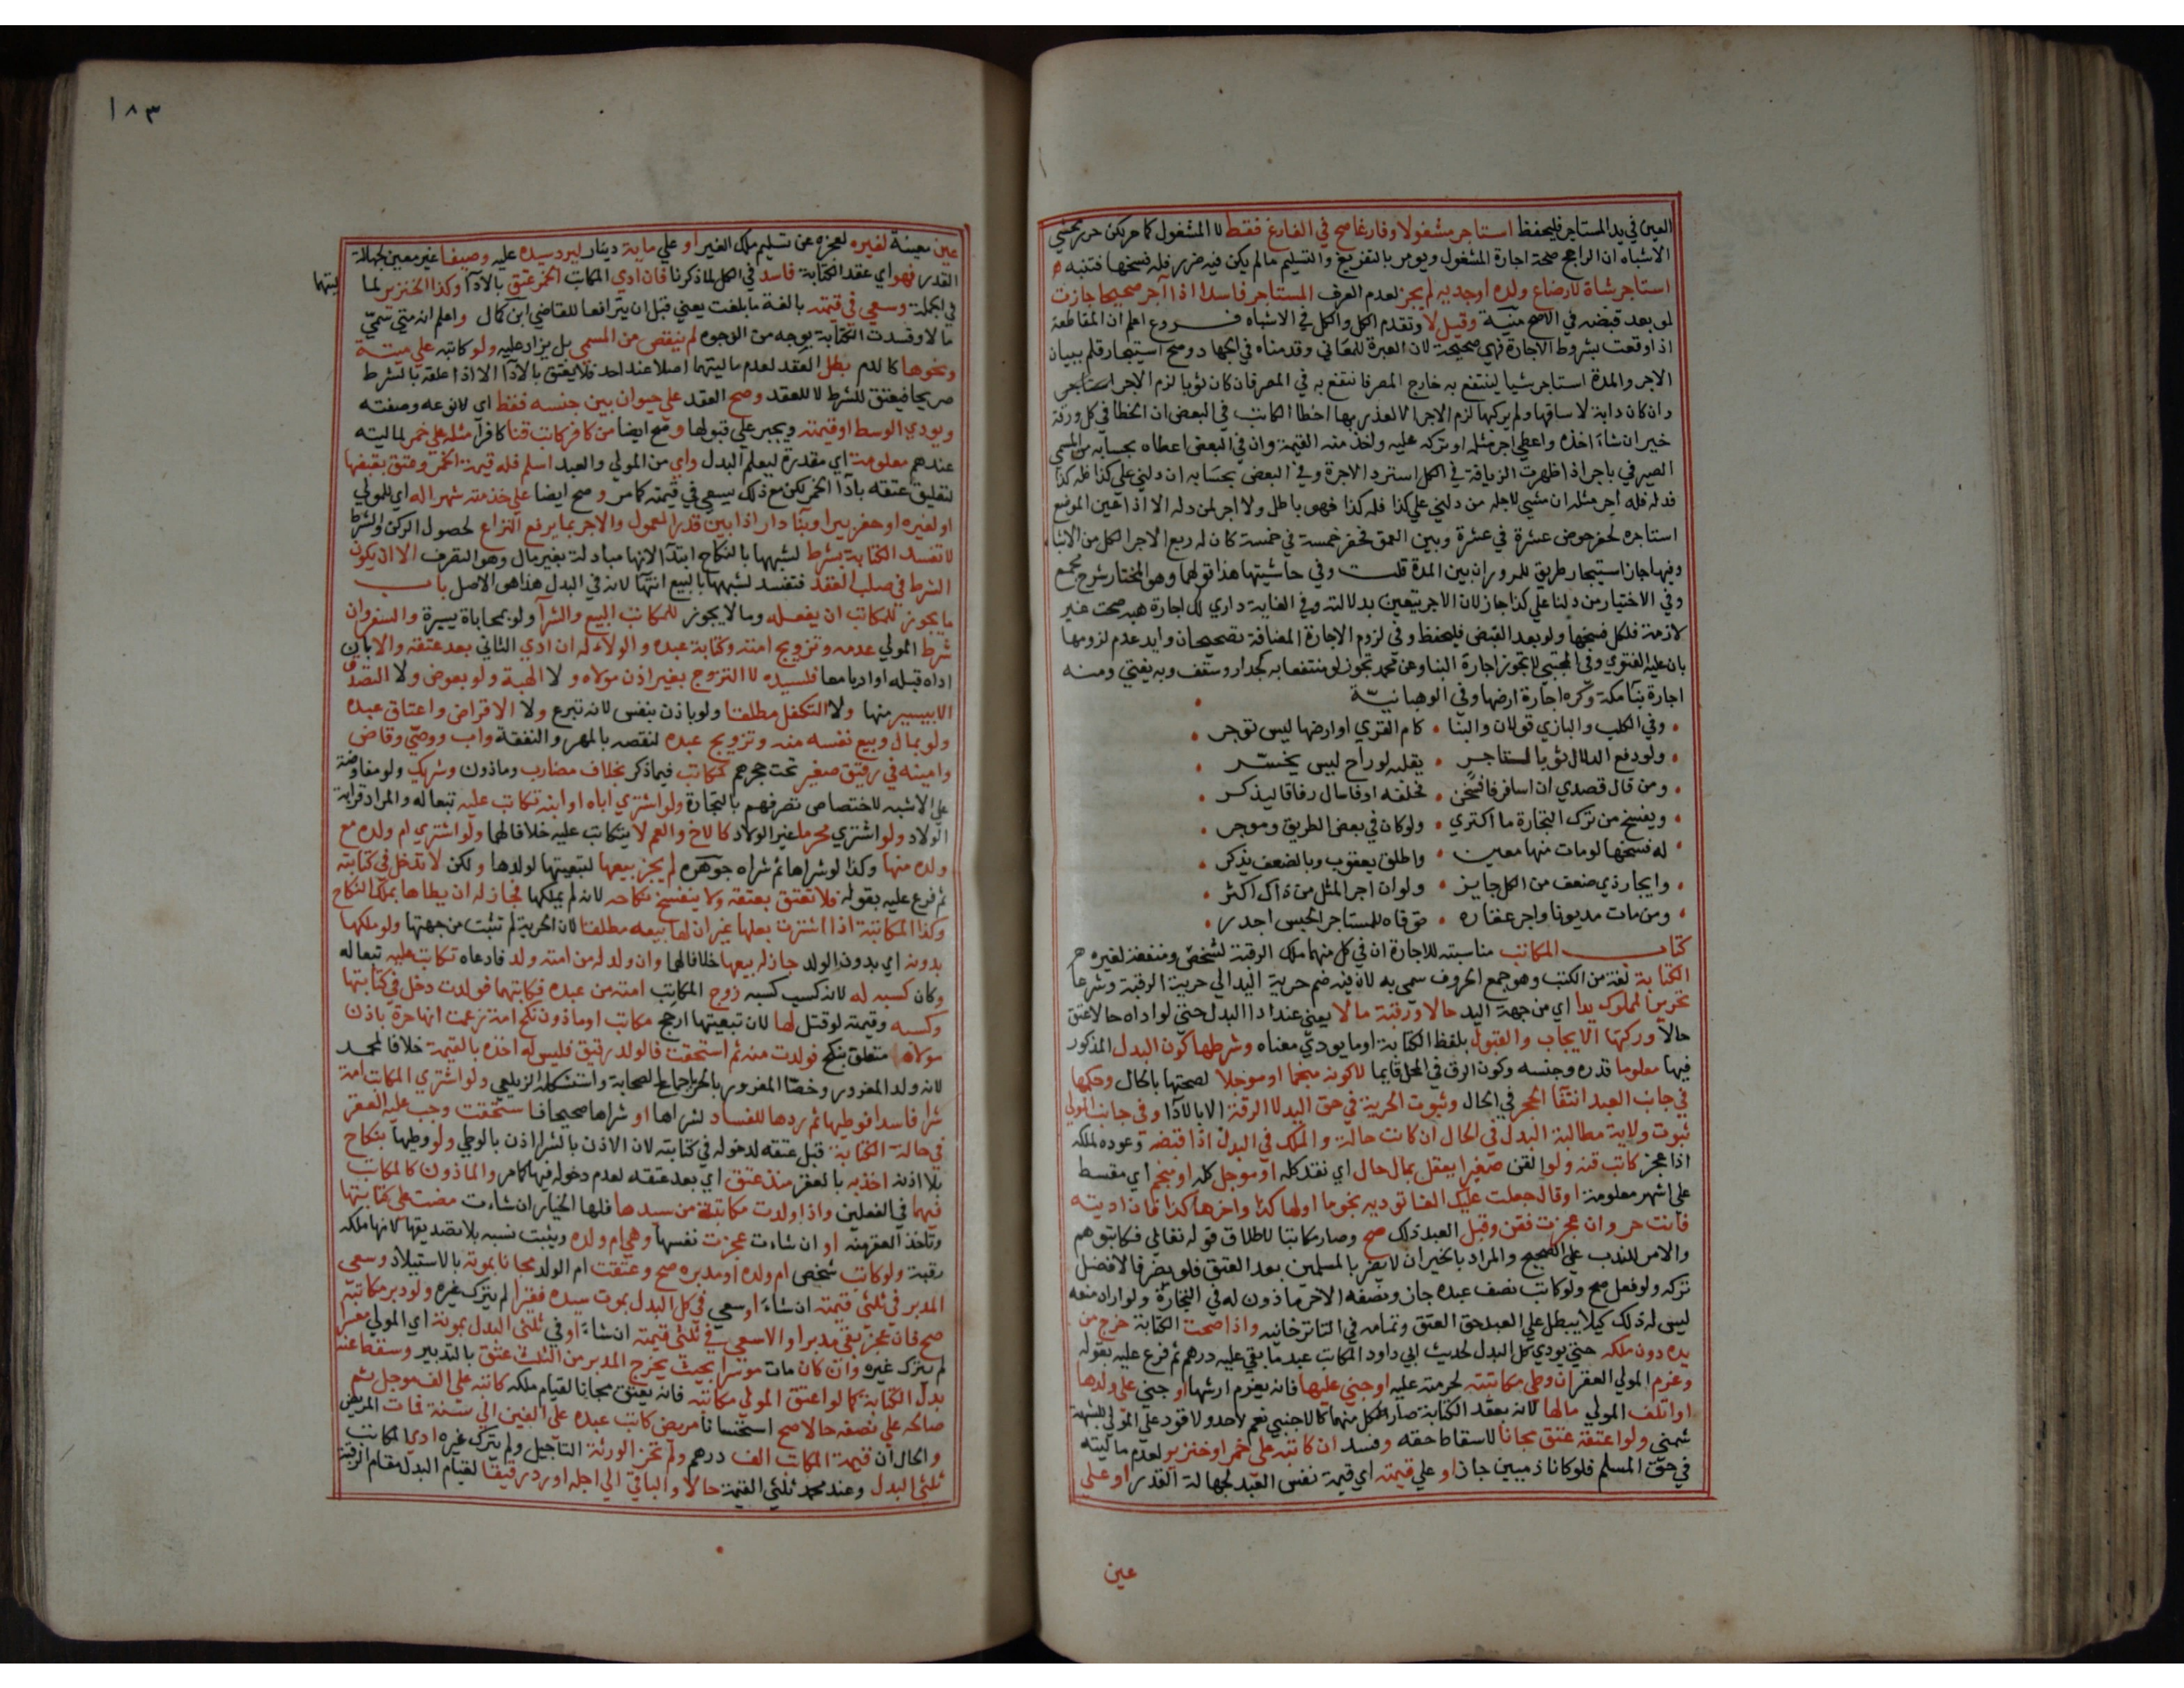 العين في يد المستاجر فليحفظ استاجر مشغولا وفارغا صح في الفارغ فقط لا المشغول كما مر لكن حرر محشي
الاشباه ان الراجح صحة اجارة المشغول ويومر بالتفريغ والتسليم مالم يكن فيه ضرر فله فسخها فتنبه
استاجر شاة لارضاع ولده او جديه لم يجز لعدم العرف المستاجر فاسدا اذا آجر صحيحا جازت
لو بعد قبضه في الاصح منية وقيل لا وتقدم الكل والكل في الاشباه فروع اعلم ان المقاطعة
اذا وقعت بشروط الاجارة فهي صحيحة لان العبرة للمعاني وقدمناه في الجهاد وصح استيجار قلم ببيان
الاجر والمدة استاجر شيا لينتفع به خارج المصر فانتفع به في المصر فان كان ثوبا لزم الاجر
وان كان دابة لا ساقها ولم يركبها لزم الاجر الا لعذر بها اخطا الكاتب في البعض ان الخطا في كل ورقة
خير ان شاء اخذه واعطي اجر مثله او تركه عليه واخذ منه القيمة وان في البعض اعطاه بحسابه من المسمي
الصيرفي باجر اذا ظهرت الزيافة في الكل استرد الاجرة وفي البعض بحسابه ان دلني علي كذا فله كذا
فدله فله اجر مثله ان مشي لاجله من دلني علي كذا فله كذا فهو باطل ولا اجر لمن دله الا اذا عين الموضع
استاجره لحفر حوض عشرة في عشرة وبين العمق فحفر خمسة في خمسة كان له ربع الاجر الكل من الاشباه
وفيها جاز استيجار طريق للمرور ان بين المدة قلت وفي حاشيتها هذا قولهما وهو المختار شرح مجمع
وفي الاختيار من دلنا علي كذا جاز لان الاجر يتعين بدلالته وفي الغاية داري لك اجارة هبه صحت غير
لازمة فلكل فسخها ولو بعد القبض فليحفظ وفي لزوم الاجارة المضافة تصحيحان وايد عدم لزومها
بان عليه الفتوي وفي المجتبي لا تجوز اجارة البنا وعن محمد تجوز لو منتفعا به كجدار وسقف وبه يفتي ومنه
اجارة بنا مكة وكره اجارة ارضها وفي الوهبانية
وفي الكلب والبازي قولان والبنا • كام القري او ارضها ليس توجر
ولو دفع الدلال ثوبا لتاجر • يقلبه لو راح ليس يخسر
ومن قال قصدي ان اسافر فافسخن • فحلفه او فاسال رفاقا ليذكر
ويفسخ من ترك التجارة ما اكتري • ولو كان في بعض الطريق وموجر
له فسخها لو مات منها معين • واطلق يعقوب وبالضعف يذكر
وايجار ذي ضعف من الكل جايز • ولو ان اجر المثل من ذاك اكثر
ومن مات مديونا واجر عقاره • توفاه للمستاجر الحبس اجدر
كتاب المكاتب مناسبته للاجارة ان في كل منهما ملك الرقبة لشخص ومنفعة لغيره
الكتابة لغة من الكتب وهو جمع الحروف سمي به لان فيه ضم حرية اليد الي حرية الرقبة وشرعا
تحرير المملوك يدا اي من جهة اليد حالا ورقبة مالا يعني عند ادا البدل حتي لو اداه حالا عتق
حالا وركنها الايجاب والقبول بلفظ الكتابة او ما يودي معناه وشرطها كون البدل المذكور
فيها معلوما قدره وجنسه وكون الرق في المحل قايما لا كونه منجما او موجلا لصحتها بالحال وحكمها
في جانب العبد انتفا الحجر في الحال وثبوت الحرية في حق اليد لا الرقبة الا بالادا وفي جانب المولي
ثبوت ولاية مطالبة البدل في الحال ان كانت حالة والملك في البدل اذا قبضه وعوده لملكه
اذا عجز كاتب قنه ولو القن صغيرا يعقل بمال حال اي نقد كله او موجل كله او منجم اي مقسط
علي اشهر معلومة او قال جعلت عليك الفا توديه نجوما اولها كذا واخرها كذا فان اديته
فانت حر وان عجزت فقن وقبل العبد ذلك صح وصار مكاتبا لاطلاق قوله تعالي فكاتبوهم
والامر للندب علي الصحيح والمراد بالخير ان لا يضر بالمسلمين بعد العتق فلو يضر فالافضل
تركه ولو فعل صح ولو كاتب نصف عبده جاز ونصفه الاخر ماذون له في التجارة ولو اراد منعه
ليس له ذلك كيلا يبطل علي العبد حق العتق وتمامه في التاترخانيه واذا صحت الكتابة خرج من
يده دون ملكه حتي يودي كل البدل لحديث ابي داود المكاتب عبد ما بقي عليه درهم ثم فرع عليه بقوله
وغرم المولي العقر ان وطي مكاتبته لحرمته عليه او جني عليها فانه يغرم ارشها او جني علي ولدها
او اتلف المولي مالها لانه بعقد الكتابة صار كل منهما كالاجنبي نعم لا حد ولا قود علي المولي للشبهة
شمني ولو اعتقه عتق مجانا لاسقاط حقه وفسد ان كاتبه علي خمر او خنزير لعدم ماليته
في حق المسلم فلو كانا ذميين جاز او علي قيمته اي قيمة نفس العبد لجهالة القدر او علي
عين
١٨٣
عين معينة لغيره لعجزه عن تسليم ملك الغير او علي ماية دينار ليرد سيده عليه وصيفا غير معين لجهالة
القدر فهو اي عقد الكتابة فاسد في الكل لما ذكرنا فان ادي المكاتب الخمر عتق بالادا وكذا الخنزير لما
ليتها
في الجملة وسعي في قيمته بالغة ما بلغت يعني قبل ان يترافعا للقاضي ابن كمال واعلم انه متي سمي
مالا وفسدت الكتابة بوجه من الوجوه لم ينقص من المسمي بل يزاد عليه ولو كاتبه علي ميتة
ونحوها كالدم بطل العقد لعدم ماليتهما اصلا عند احد فلا يعتق بالادا الا اذا علقه بالشرط
صريحا فيعتق للشرط لا للعقد وصح العقد علي حيوان بين جنسه فقط اي لا نوعه وصفته
ويودي الوسط او قيمته ويجبر علي قبولها وصح ايضا من كافر كاتب قنا كافرا مثله علي خمر لماليته
عندهم معلومة اي مقدرة ليعلم البدل واي من المولي والعبد اسلم فله قيمة الخمر وعتق بقبضها
لتعليق عتقه بادا الخمر لكن مع ذلك يسعي في قيمته كما مر وصح ايضا علي خدمته شهرا له اي للمولي
او لغيره او حفر بير او بنا دار اذا بين قدر المعمول والاجر بما يرفع النزاع لحصول الركن والشرط
لا تفسد الكتابة بشرط لشبهها بالنكاح ابتدا لانها مبادلة بغير مال وهو التصرف الا ان يكون
الشرط في صلب العقد فتفسد لشبهها بالبيع انتها لانه في البدل هذا هو الاصل باب
ما يجوز للمكاتب ان يفعله وما لا يجوز للمكاتب البيع والشرا ولو بمحاباة يسيرة والسفر وان
شرط المولي عدمه وتزويج امته وكتابة عبده والولاء له ان ادي الثاني بعد عتقه والا بان
اداه قبله او اديا معا فلسيده لا التزوج بغير اذن مولاه ولا الهبة ولو بعوض ولا التصدق
الا بيسير منها ولا التكفل مطلقا ولو باذن بنفس لانه تبرع ولا الاقراض واعتاق عبده
ولو بمال وبيع نفسه منه وتزويج عبده لنقصه بالمهر والنفقة واب ووصي وقاض
وامينه في رقيق صغير تحت حجرهم كمكاتب فيما ذكر بخلاف مضارب وماذون وشريك ولو مفاوضة
علي الاشبه لاختصاص تصرفهم بالتجارة ولو اشتري اباه او ابنه تكاتب عليه تبعا له والمراد قرابة
الولاد ولو اشتري محرما غير الولاد كالاخ والعم لا يتكاتب عليه خلافا لهما ولو اشتري ام ولده مع
ولده منها وكذا لو شراها ثم شراه جوهره لم يجز بيعها لتبعيتها لولدها ولكن لا تدخل في كتابته
ثم فرع عليه بقوله فلا تعتق بعتقه ولا ينفسخ نكاحه لانه لم يملكها فجاز له ان يطاها بملك النكاح
وكذا المكاتبة اذا اشترت بعلها غير ان لها بيعه مطلقا لان الحرية لم تثبت من جهتها ولو ملكها
بدونه اي بدون الولد جاز له بيعها خلافا لهما وان ولد له من امته ولد فادعاه تكاتب عليه تبعا له
وكان كسبه له لانه كسب كسبه زوج المكاتب امته من عبده فكاتبهما فولدت دخل في كتابتها
وكسبه وقيمته لو قتل لها لان تبعيتها ارجح مكاتب او ماذون نكح امة زعمت انها حرة باذن
مولاه متعلق بنكح فولدت منه ثم استحقت فالولد رقيق فليس له اخذه بالقيمة خلافا لمحمد
لانه ولد المغرور وخصا المغرور بالحر باجماع الصحابة واستشكله الزيلعي ولو اشتري المكاتب امة
شرا فاسدا فوطيها ثم ردها للفساد لشراها او شراها صحيحا فاستحقت وجب عليه العقر
في حالة الكتابة قبل عتقه لدخوله في كتابته لان الاذن بالشرا اذن بالوطي ولو وطيها بنكاح
بلا اذنه اخذ به بالعقر منذ عتق اي بعد عتقه لعدم دخوله فيها كما مر والماذون كالمكاتب
فيهما في الفصلين واذا ولدت مكاتبة من سيدها فلها الخيار ان شاءت مضت علي كتابتها
وتاخذ العقر منه او ان شاءت عجزت نفسها وهي ام ولده ويثبت نسبه بلا تصديقها لانها ملكه
رقبة ولو كاتب شخص ام ولده او مدبره صح وعتقت ام الولد مجانا بموته بالاستيلاد وسعي
المدبر في ثلثي قيمته ان شاء او سعي في كل البدل بموت سيده فقيرا لم يترك غيره ولو دبر مكاتبه
صح فان عجز بقي مدبرا والا سعي في ثلثي قيمته ان شاء او في ثلثي البدل بموته اي المولي معسرا
لم يترك غيره وان كان مات موسرا بحيث يخرج المدبر من الثلث عتق بالتدبير وسقط عنه
بدل الكتابة كما لو اعتق المولي مكاتبه فانه يعتق مجانا لقيام ملكه كاتبه علي الف موجل ثم
صالحه علي نصفه حالا صح استحسانا مريض كاتب عبده علي الفين الي سنة فمات المريض
والحال ان قيمة المكاتب الف درهم ولم تجز الورثة التاجيل ولم يترك غيره ادي المكاتب
ثلثي البدل وعند محمد ثلثي القيمة حالا والباقي الي اجله او رد رقيقا لقيام البدل مقام الرقبة